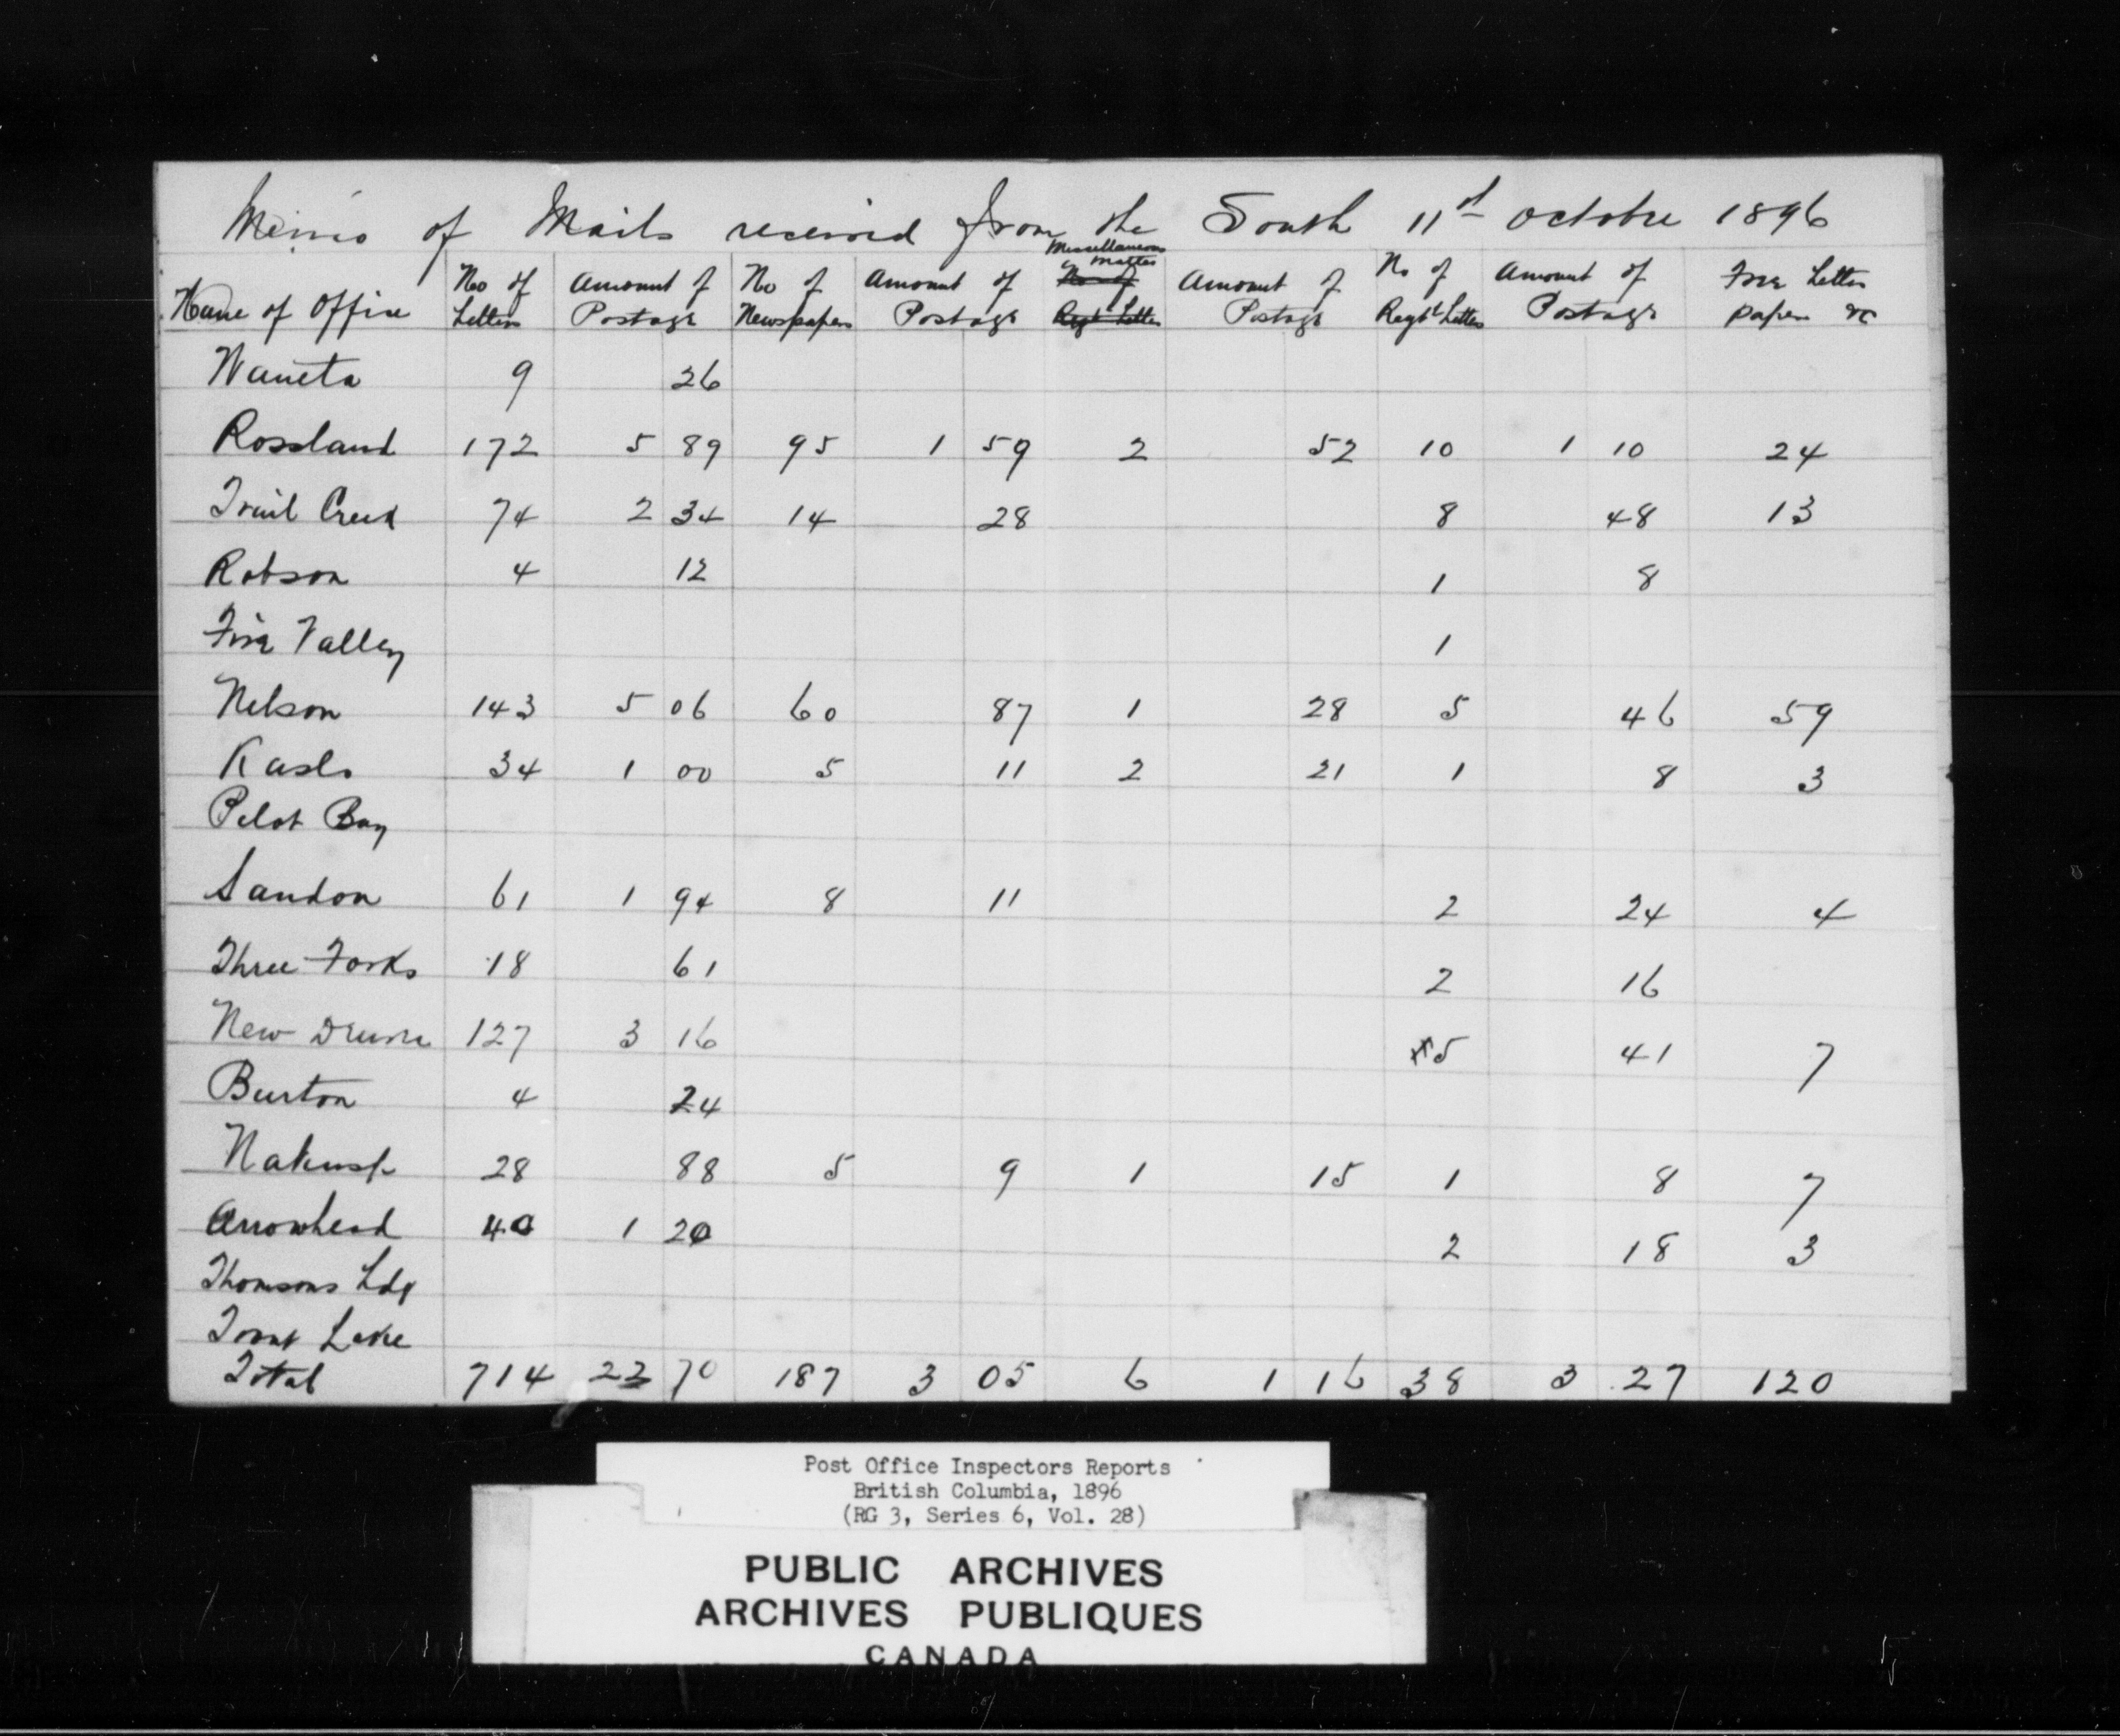 Memo of Mails received from the South 11th octobre 1896
Name of Office No of Letters Amount of Postage No of Newspapers Amount of Postage Miscellaneous Matter No of Regt Letter Amount of Postage No of Regt Letters Amount of Postage Free Letter papers &c
Waneta 9 26
Rossland 172 5 89 95 1 59 2 52 10 1 10 24
Trail Creek 74 2 34 14 28 8 48 13
Robson 4 12 1 8
Fire Valley 1
Nelson 143 5 06 60 87 1 28 5 46 59
Kaslo 34 1 00 5 11 2 21 1 8 3
Pilot Bay
Sandon 61 1 94 8 11 2 24 4
Three Forks 18 61 2 16
New Denver 127 3 16 5 41 7
Burton 4 24
Nakusp 28 88 5 9 1 15 1 8 7
Arrowhead 40 1 20 2 18 3
Thomsons Ldg
Trout Lake
Total 714 22 70 187 3 05 6 1 16 38 3 27 120
Post Office Inspectors Reports
British Columbia, 1896
(RG 3, Series 6, Vol. 28)
PUBLIC ARCHIVES
ARCHIVES PUBLIQUES
CANADA